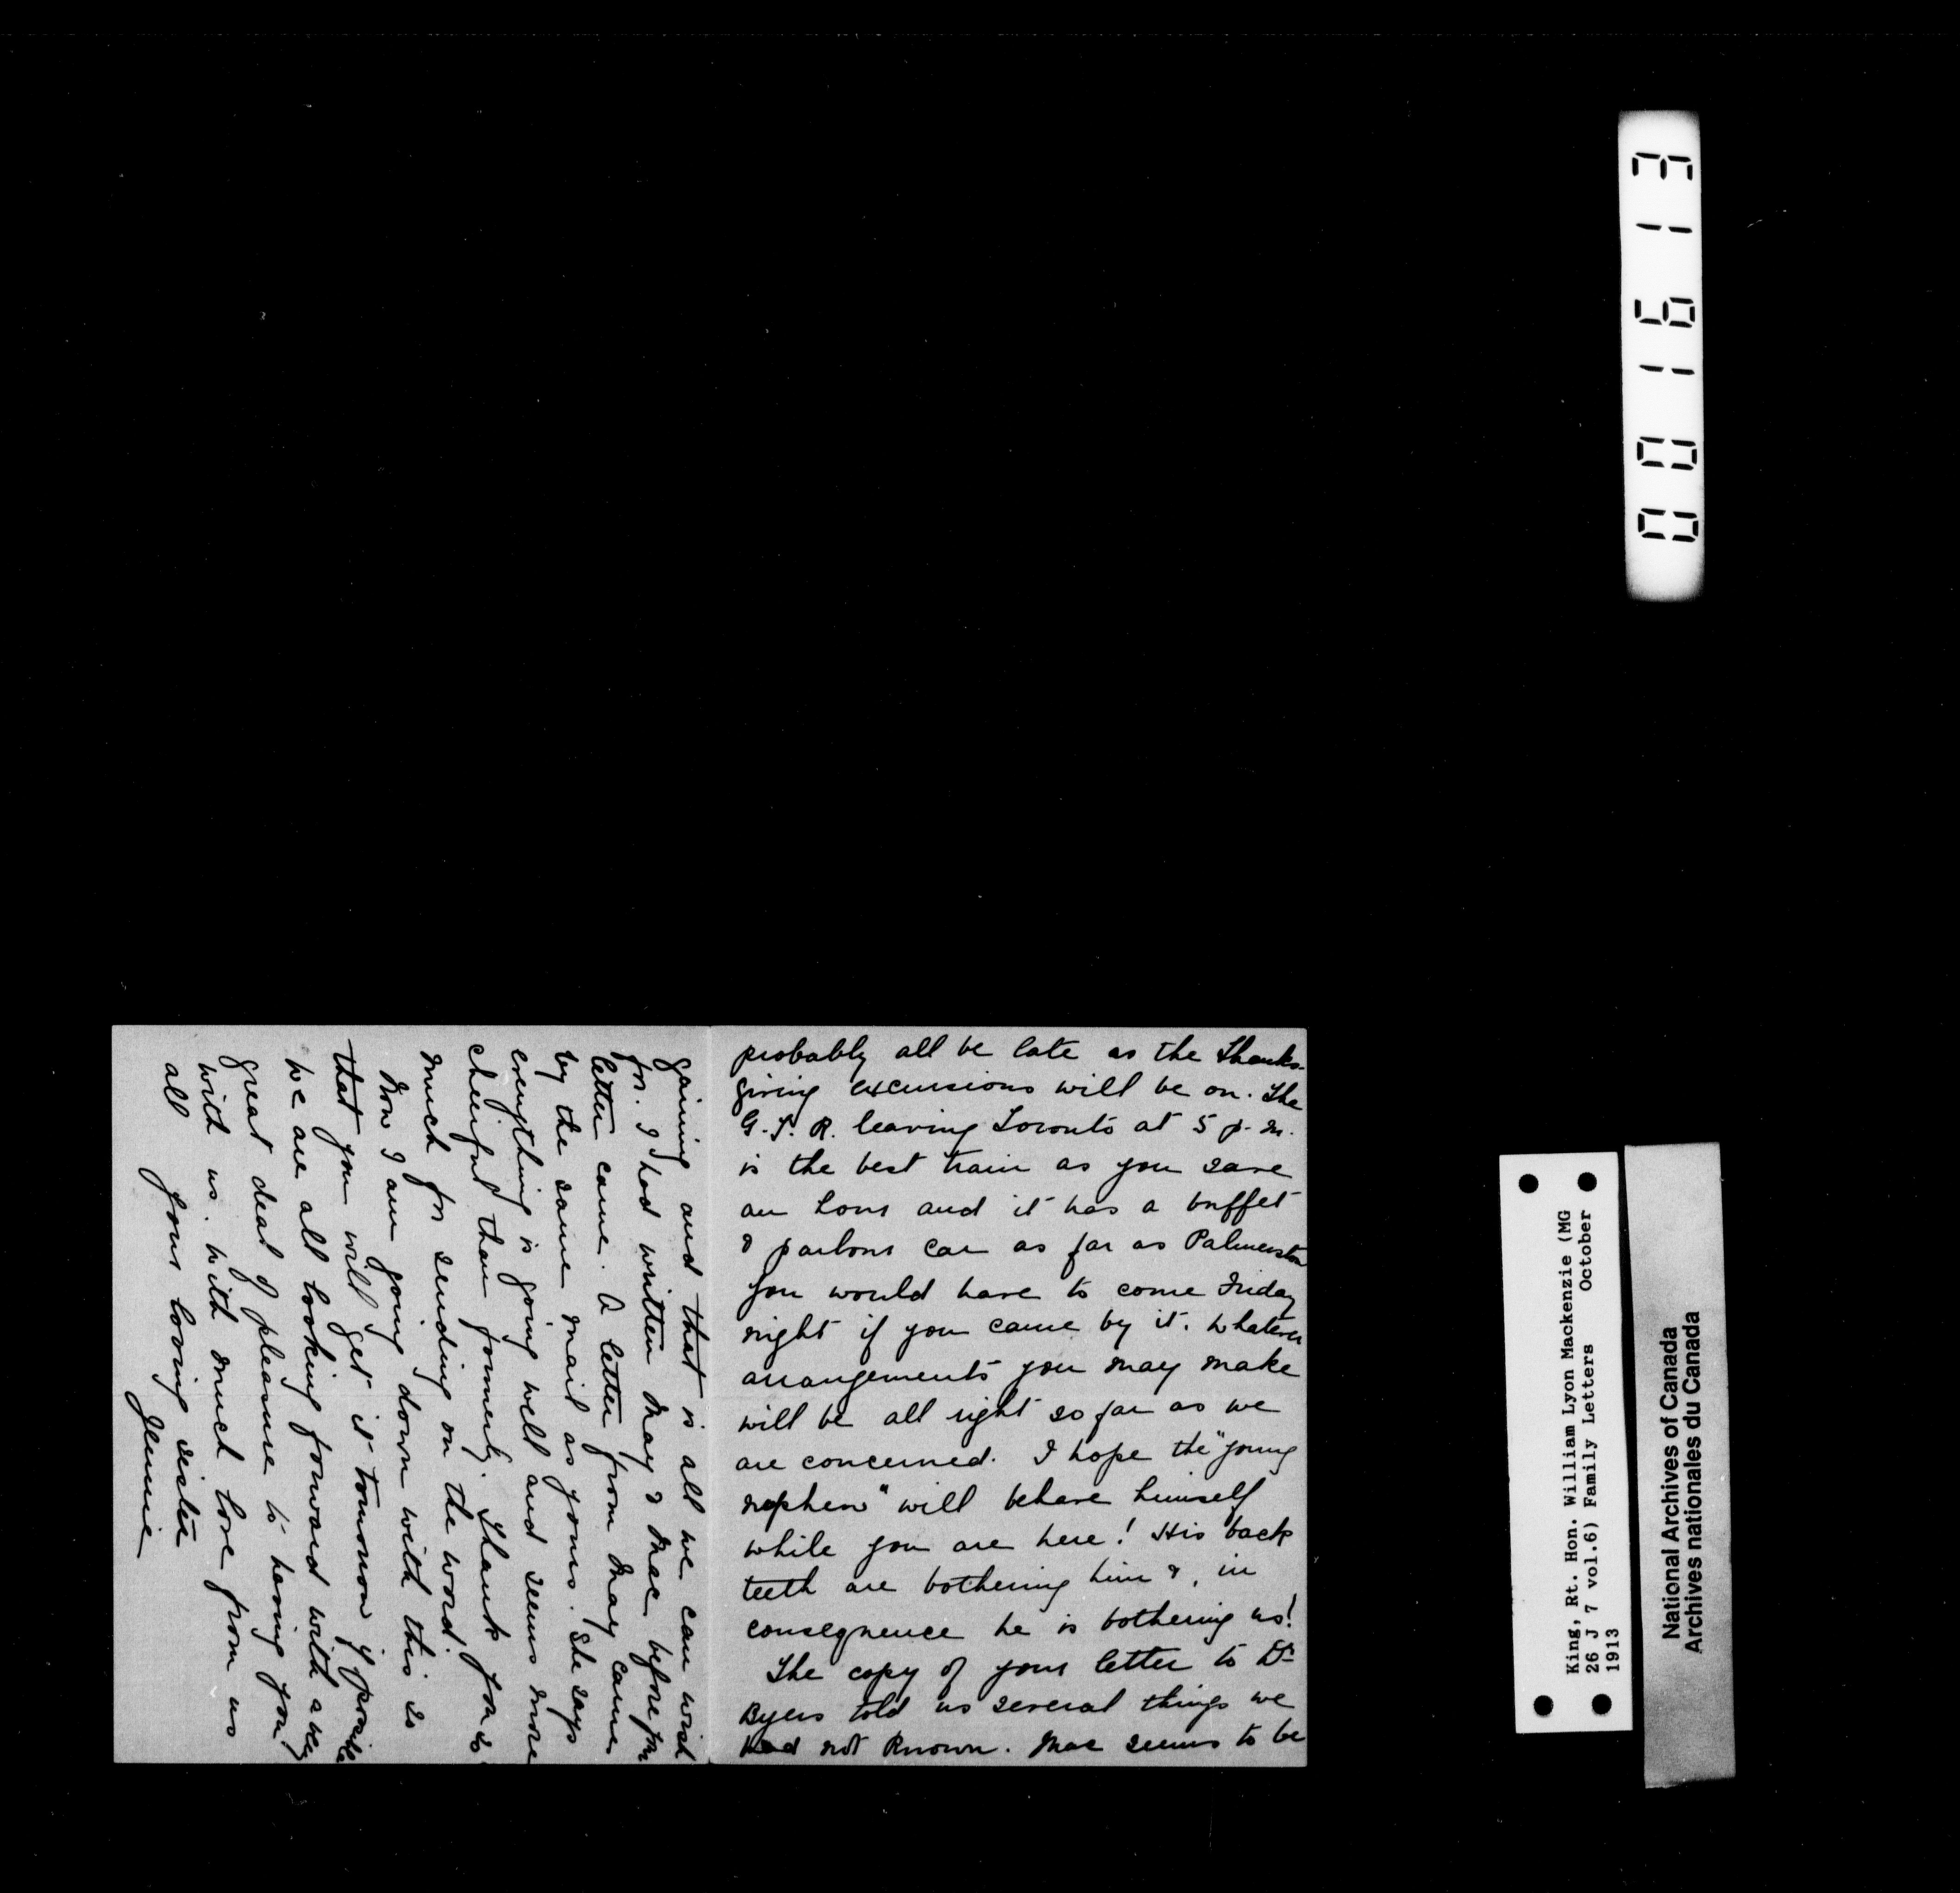 probably all be late as the Thanks-
giving excursions will be on. The
G.T.R. leaving Toronto at 5 p.m.
is the best train as you save
an hour and it has a buffet
& parlour car as far as Palmerston
You would have to come Friday
night if you came by it. Whatever
arrangements you may make
will be all right so far as we
are concerned. I hope the "young
nephew" will behave himself
while you are here! His back
teeth are bothering him &, in
consequence he is bothering us!
The copy of your letter to Dr
Byers told us several things we
had not known. Mac seems to be
gaining and that is all we can wish
for. I had written May & Mac before your
letter came. A letter from May came
by the same mail as yours. She says
everything is going well and seems more
cheerful than formerly. Thank you so
much for sending on the word.
Now I am going down with this so
that you will get it tomorrow if possible
We are all looking forward with a very
great deal of pleasure to having you
with us. With much love from us
all
Your loving sister
Jennie
001613
King, Rt. Hon. William Lyon Mackenzie (MG
26 J 7 vol.6) Family Letters October
1913
National Archives of Canada
Archives nationales du Canada